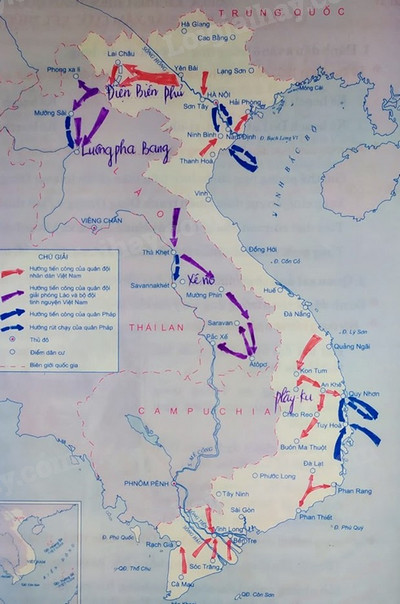 TRUNG QUỐC
Hà Giang
Cao Bằng
Lai Châu
SÔNG HỒNG
Phong xa lì
Yên Bái
Lạng Sơn
Điện Biên Phủ
HÀ NỘI
Móng Cái
Mường Sài
Sơn Tây
Hải Phòng
Luông pha Bang
Ninh Bình
Nam Định
Đ. Bạch Long Vĩ
Thanh Hoá
VỊNH BẮC BỘ
LÀO
Vinh
VIÊNG CHĂN
CHÚ GIẢI
Hướng tiến công của quân đội nhân dân Việt Nam
Hướng tiến công của quân đội giải phóng Lào và bộ đội tình nguyện Việt Nam
Hướng tiến công của quân Pháp
Hướng rút chạy của quân Pháp
Thủ đô
Điểm dân cư
Biên giới quốc gia
Thà Khẹt
Đồng Hới
Đ. Cồn Cỏ
Savannakhét
Xê nô
Mường Phìn
Huế
Đà Nẵng
THÁI LAN
Saravan
Đ. Lý Sơn
Pắc Xế
Quảng Ngãi
Atôpơ
Kon Tum
An Khê
Quy Nhơn
CAMPUCHIA
Plây ku
Cheo Reo
Tuy Hoà
Buôn Ma Thuột
S. MÊ CÔNG
Đà Lạt
PHNÔM PÊNH
Phước Long
Phan Rang
Tây Ninh
Sài Gòn
Phan Thiết
Đ. Phú Quý
Đ. Phú Quốc
Vĩnh Long
Bến Tre
Rạch Giá
Sóc Trăng
QĐ. Thổ Chu
Cà Mau
QĐ. Côn Sơn